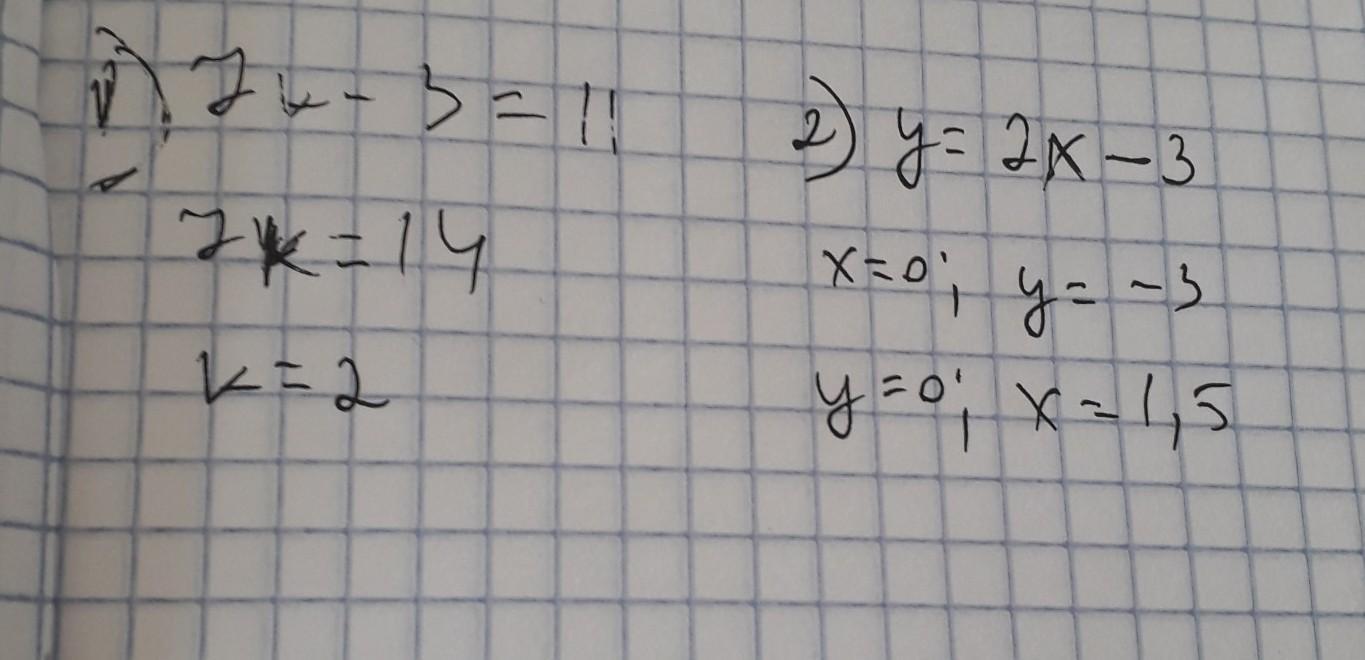 1) 7k - 3 = 11
7k = 14
k = 2
2) y = 2x - 3
x = 0; y = -3
y = 0; x = 1,5